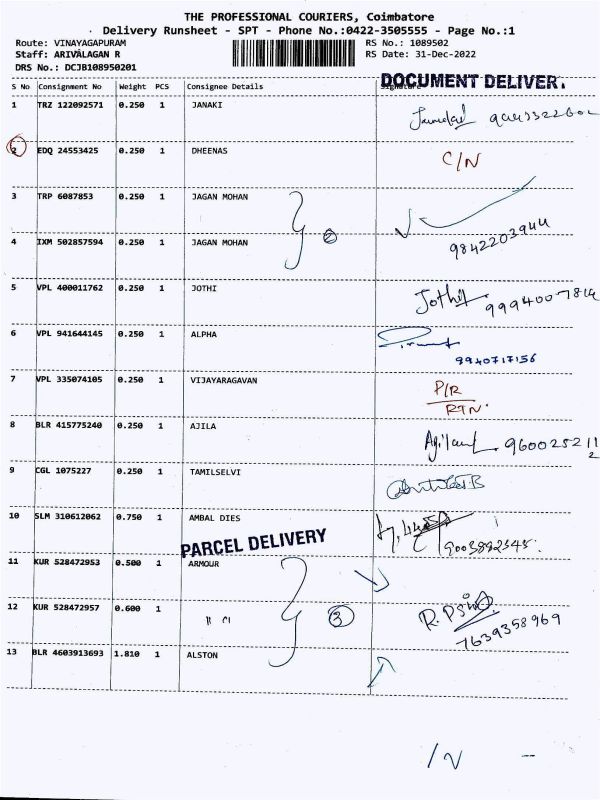 THE PROFESSIONAL COURIERS, Coimbatore
Delivery Runsheet - SPT - Phone No.:0422-3505555 - Page No.:1
Route: VINAYAGAPURAM RS No.: 1089502
Staff: ARIVALAGAN R RS Date: 31-Dec-2022
DRS No.: DCJB108950201
DOCUMENT DELIVER.
S No Consignment No Weight PCS Consignee Details Signature
1 TRZ 122092571 0.250 1 JANAKI
2 EDQ 24553425 0.250 1 DHEENAS C/N
3 TRP 6087853 0.250 1 JAGAN MOHAN
2
4 IXM 502857594 0.250 1 JAGAN MOHAN 9842203944
5 VPL 400011762 0.250 1 JOTHI Jothi 9994007814
6 VPL 941644145 0.250 1 ALPHA
9940717156
7 VPL 335074105 0.250 1 VIJAYARAGAVAN P/R
RTN.
8 BLR 415775240 0.250 1 AJILA 9600252112
9 CGL 1075227 0.250 1 TAMILSELVI
10 SLM 310612062 0.750 1 AMBAL DIES
9003882345.
PARCEL DELIVERY
11 KUR 528472953 0.500 1 ARMOUR
12 KUR 528472957 0.600 1 " " 3 R.
7639358969
13 BLR 4603913693 1.810 1 ALSTON